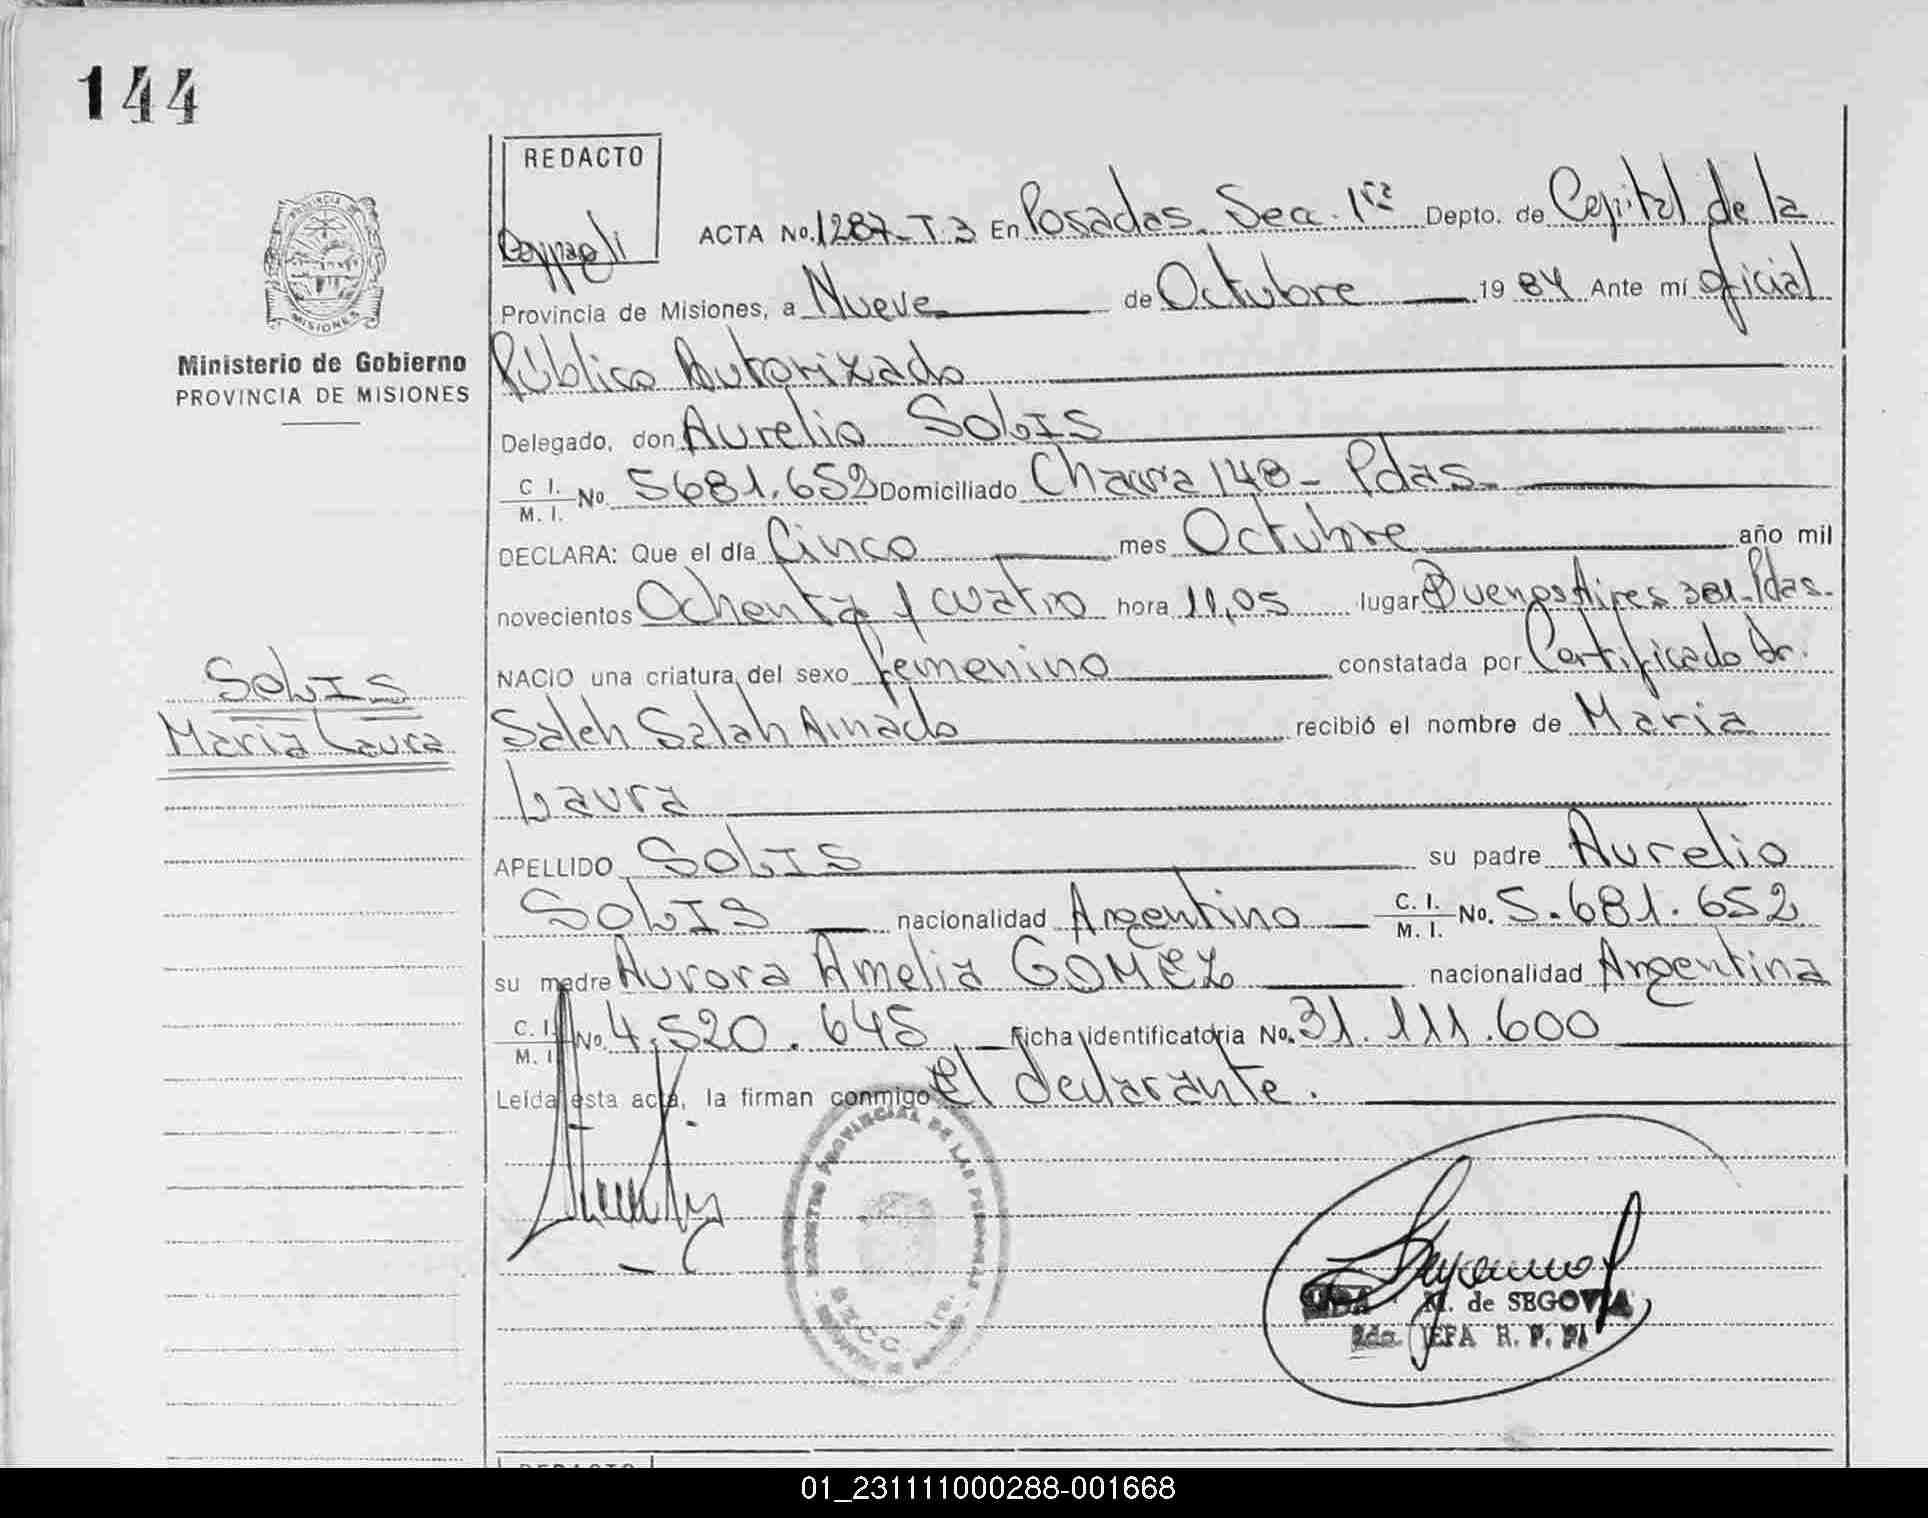 144
REDACTO
ACTA No. 1287-T.3 En Posadas. Secc. 1ra Depto. de Capital de la
Provincia de Misiones, a Nueve de Octubre 1984 Ante mí oficial
Ministerio de Gobierno
PROVINCIA DE MISIONES
Público Autorizado
Delegado, don Aurelio SOLIS
C. I. M. I. No. 5681.652 Domiciliado Chacra 148 - Pdas.
DECLARA: Que el día Cinco mes Octubre año mil
novecientos Ochenta y cuatro hora 11,05 lugar Buenos Aires 381-Pdas.
NACIO una criatura del sexo femenino constatada por Certificado Dr.
SOLIS
Maria Laura
Saleh Salah Amado recibió el nombre de Maria
Laura
APELLIDO SOLIS su padre Aurelio
SOLIS nacionalidad Argentino C. I. M. I. No. 5.681.652
su madre Aurora Amelia GOMEZ nacionalidad Argentina
C. I. M. I. No. 4.520.645 Ficha identificatoria No. 31.111.600
Leída esta acta, la firman conmigo El declarante.
REGISTRO PROVINCIAL DE LAS PERSONAS
SECC. 1ra.
MISIONES
M. de SEGOVIA
2da. JEFA R. P. P.
REDACTO
01_231111000288-001668